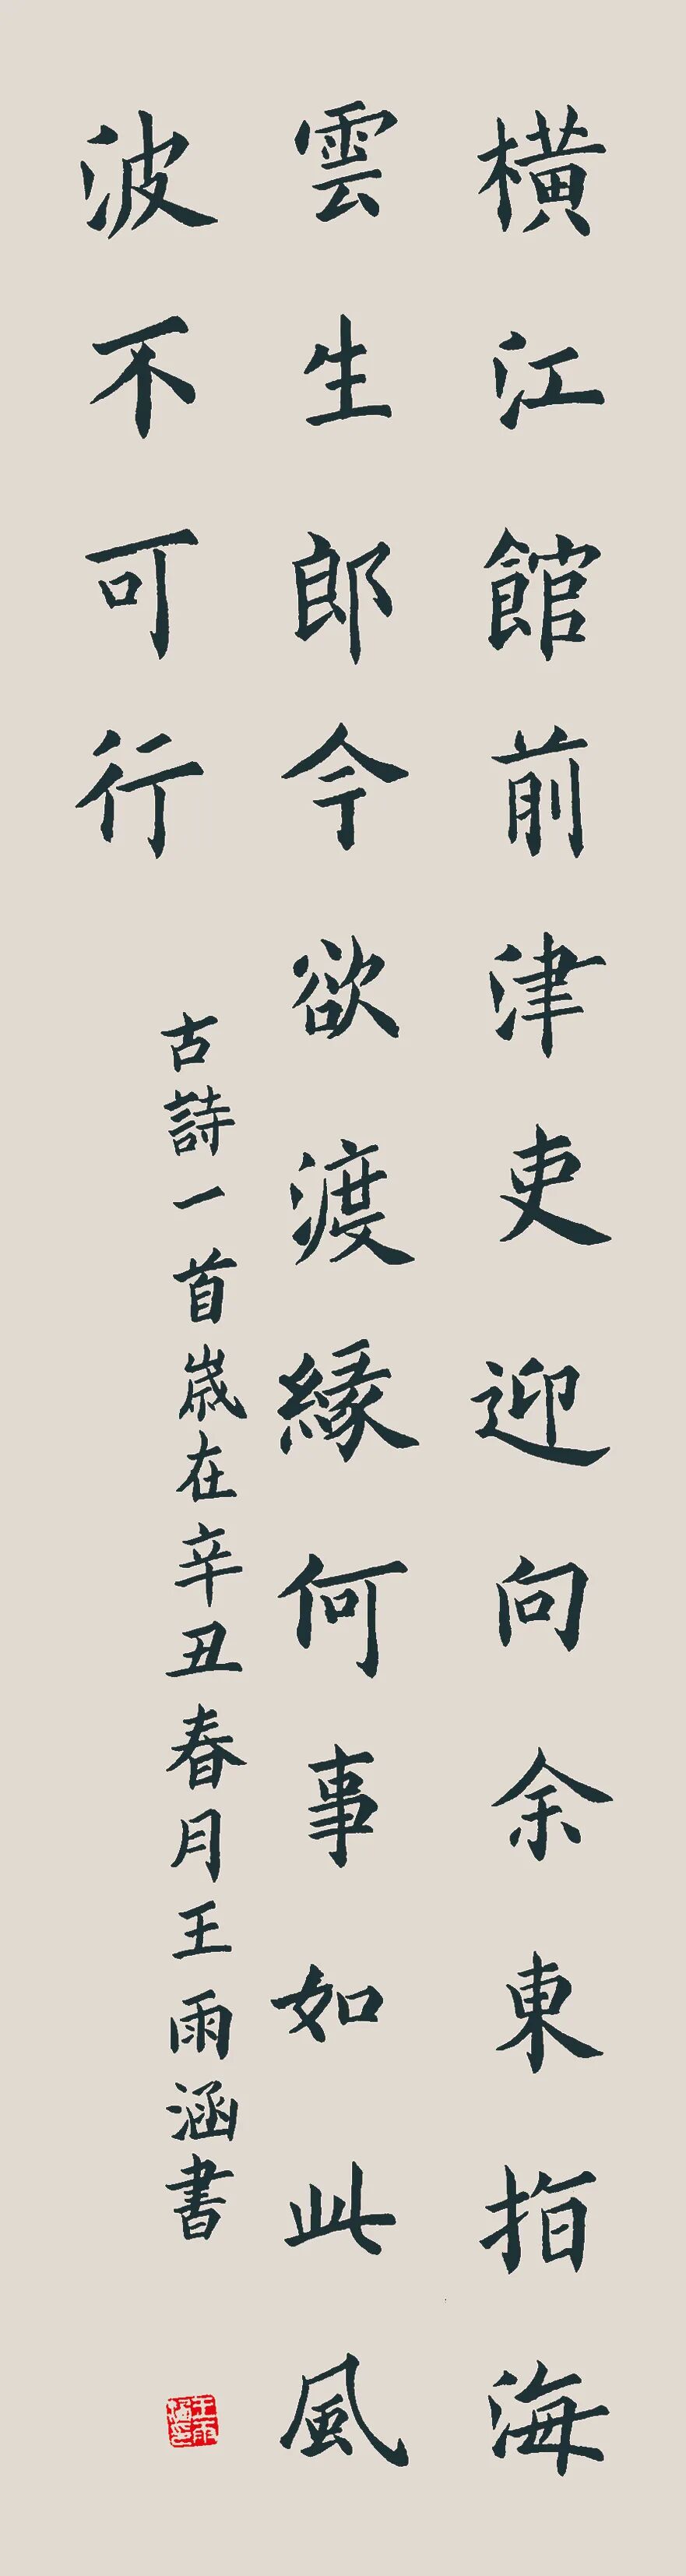 橫江館前津吏迎向余東指海
雲生郎今欲渡縁何事如此風
波不可行
古詩一首歳在辛丑春月王雨涵書
王雨涵印